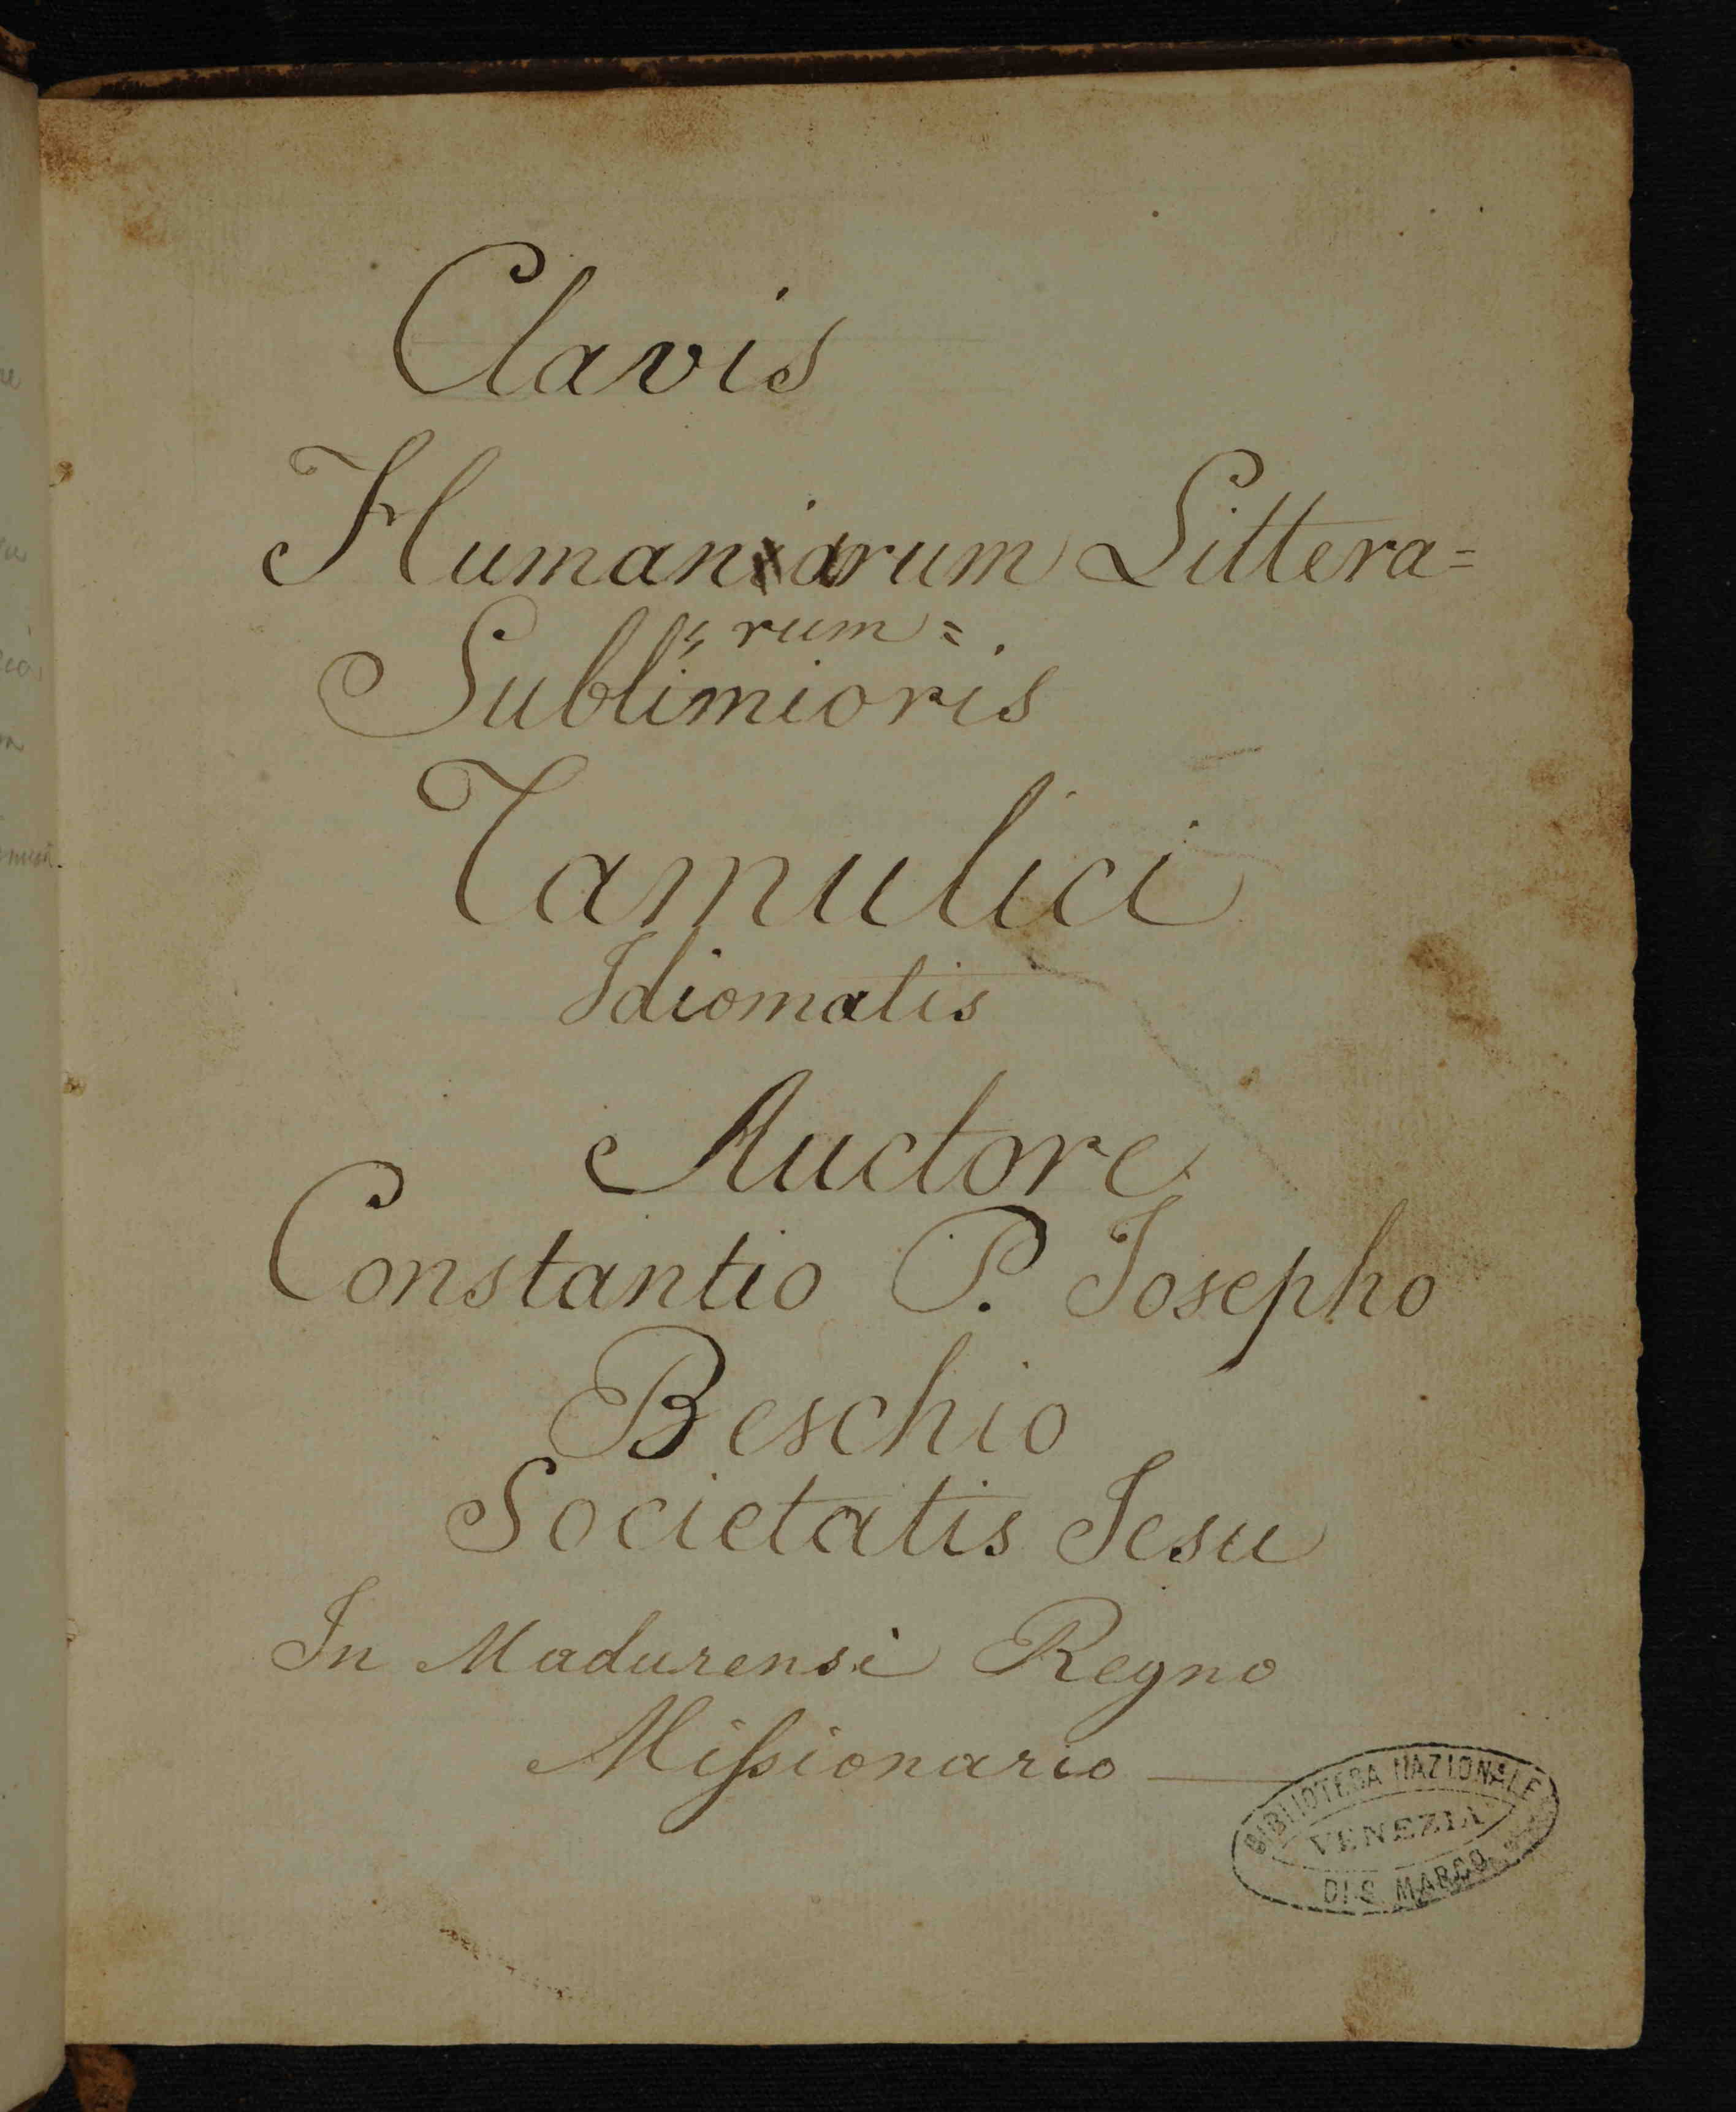 Clavis
Humanarum Littera=
= rum =
Sublimioris
Tamulici
Idiomatis
Auctore
Constantio P. Josepho
Beschio
Societatis Jesu
In Madurensi Regno
Miſsionario
BIBLIOTECA NAZIONALE
VENEZIA
DI S. MARCO